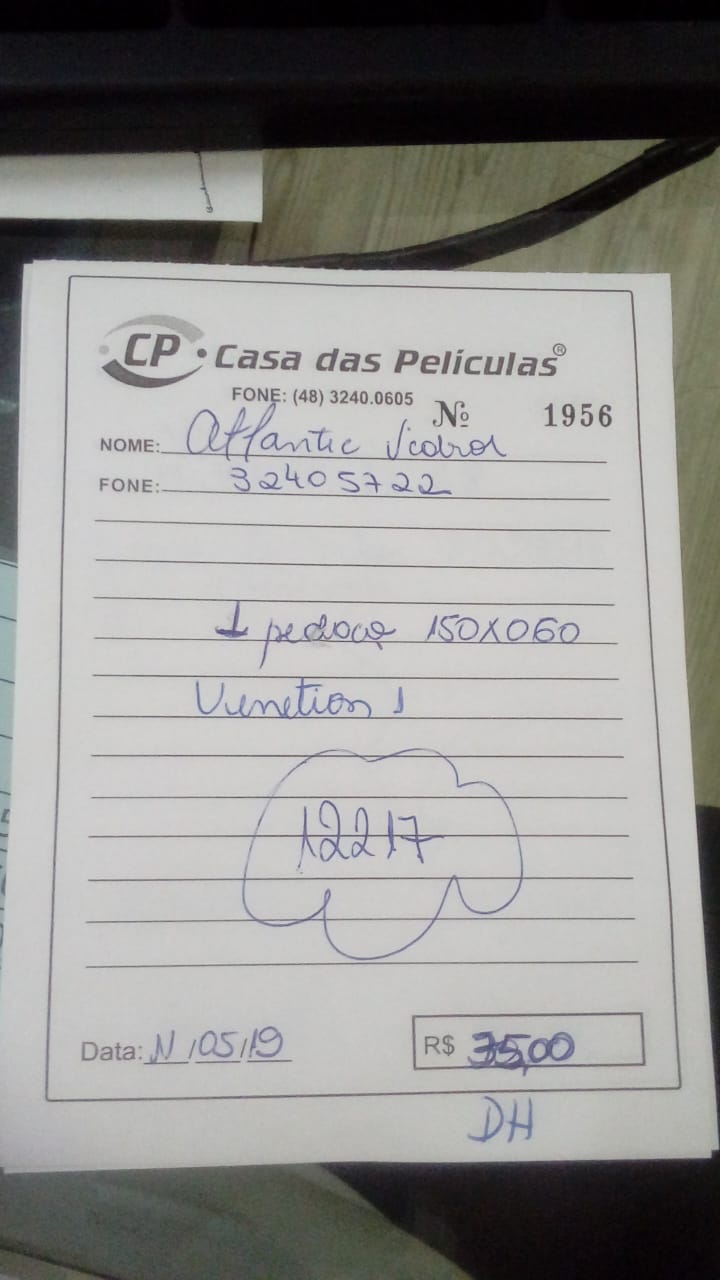 CP • Casa das Películas®
FONE: (48) 3240.0605
Nº 1956
NOME: Atlantic Vidros
FONE: 32405722
1 pedaço 150X060
Venetian 1
12217
Data: 11/05/19
R$ 35,00
DH